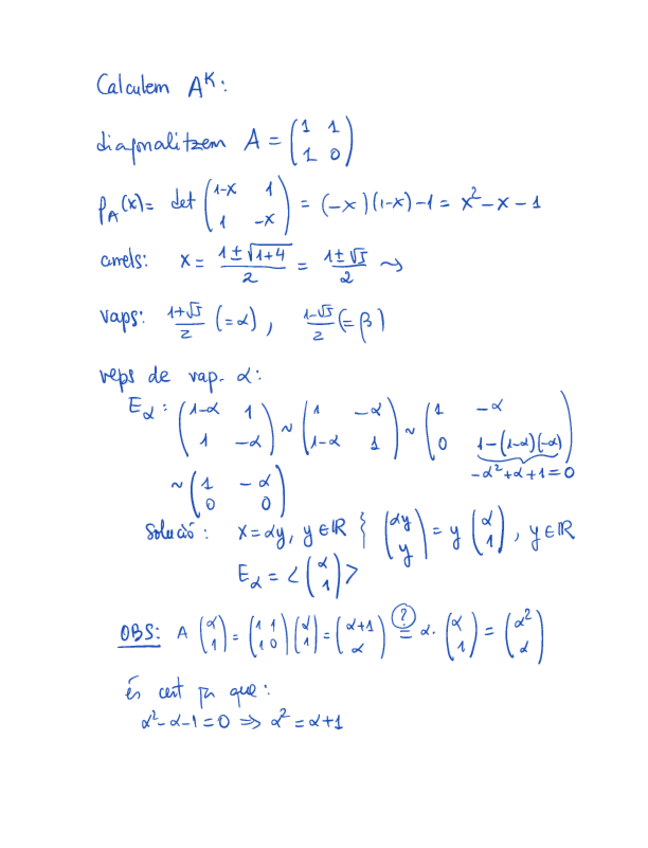 Calculem A^K:
diagonalitzem A = (1 1; 1 0)
p_A(x) = det (1-x 1; 1 -x) = (-x)(1-x)-1 = x²-x-1
arrels: x = (1±√(1+4))/2 = (1±√5)/2 ⇝
vaps: (1+√5)/2 (=α), (1-√5)/2 (=β)
veps de vap. α:
E_α: (1-α 1; 1 -α) ~ (1 -α; 1-α 1) ~ (1 -α; 0 1-(1-α)(-α))
-α²+α+1=0
~ (1 -α; 0 0)
Solució: x=αy, y∈ℝ } (αy; y) = y (α; 1), y∈ℝ
E_α = <(α; 1)>
OBS: A (α; 1) = (1 1; 1 0)(α; 1) = (α+1; α) =(?) α·(α; 1) = (α²; α)
és cert ja que:
α²-α-1=0 ⇒ α²=α+1